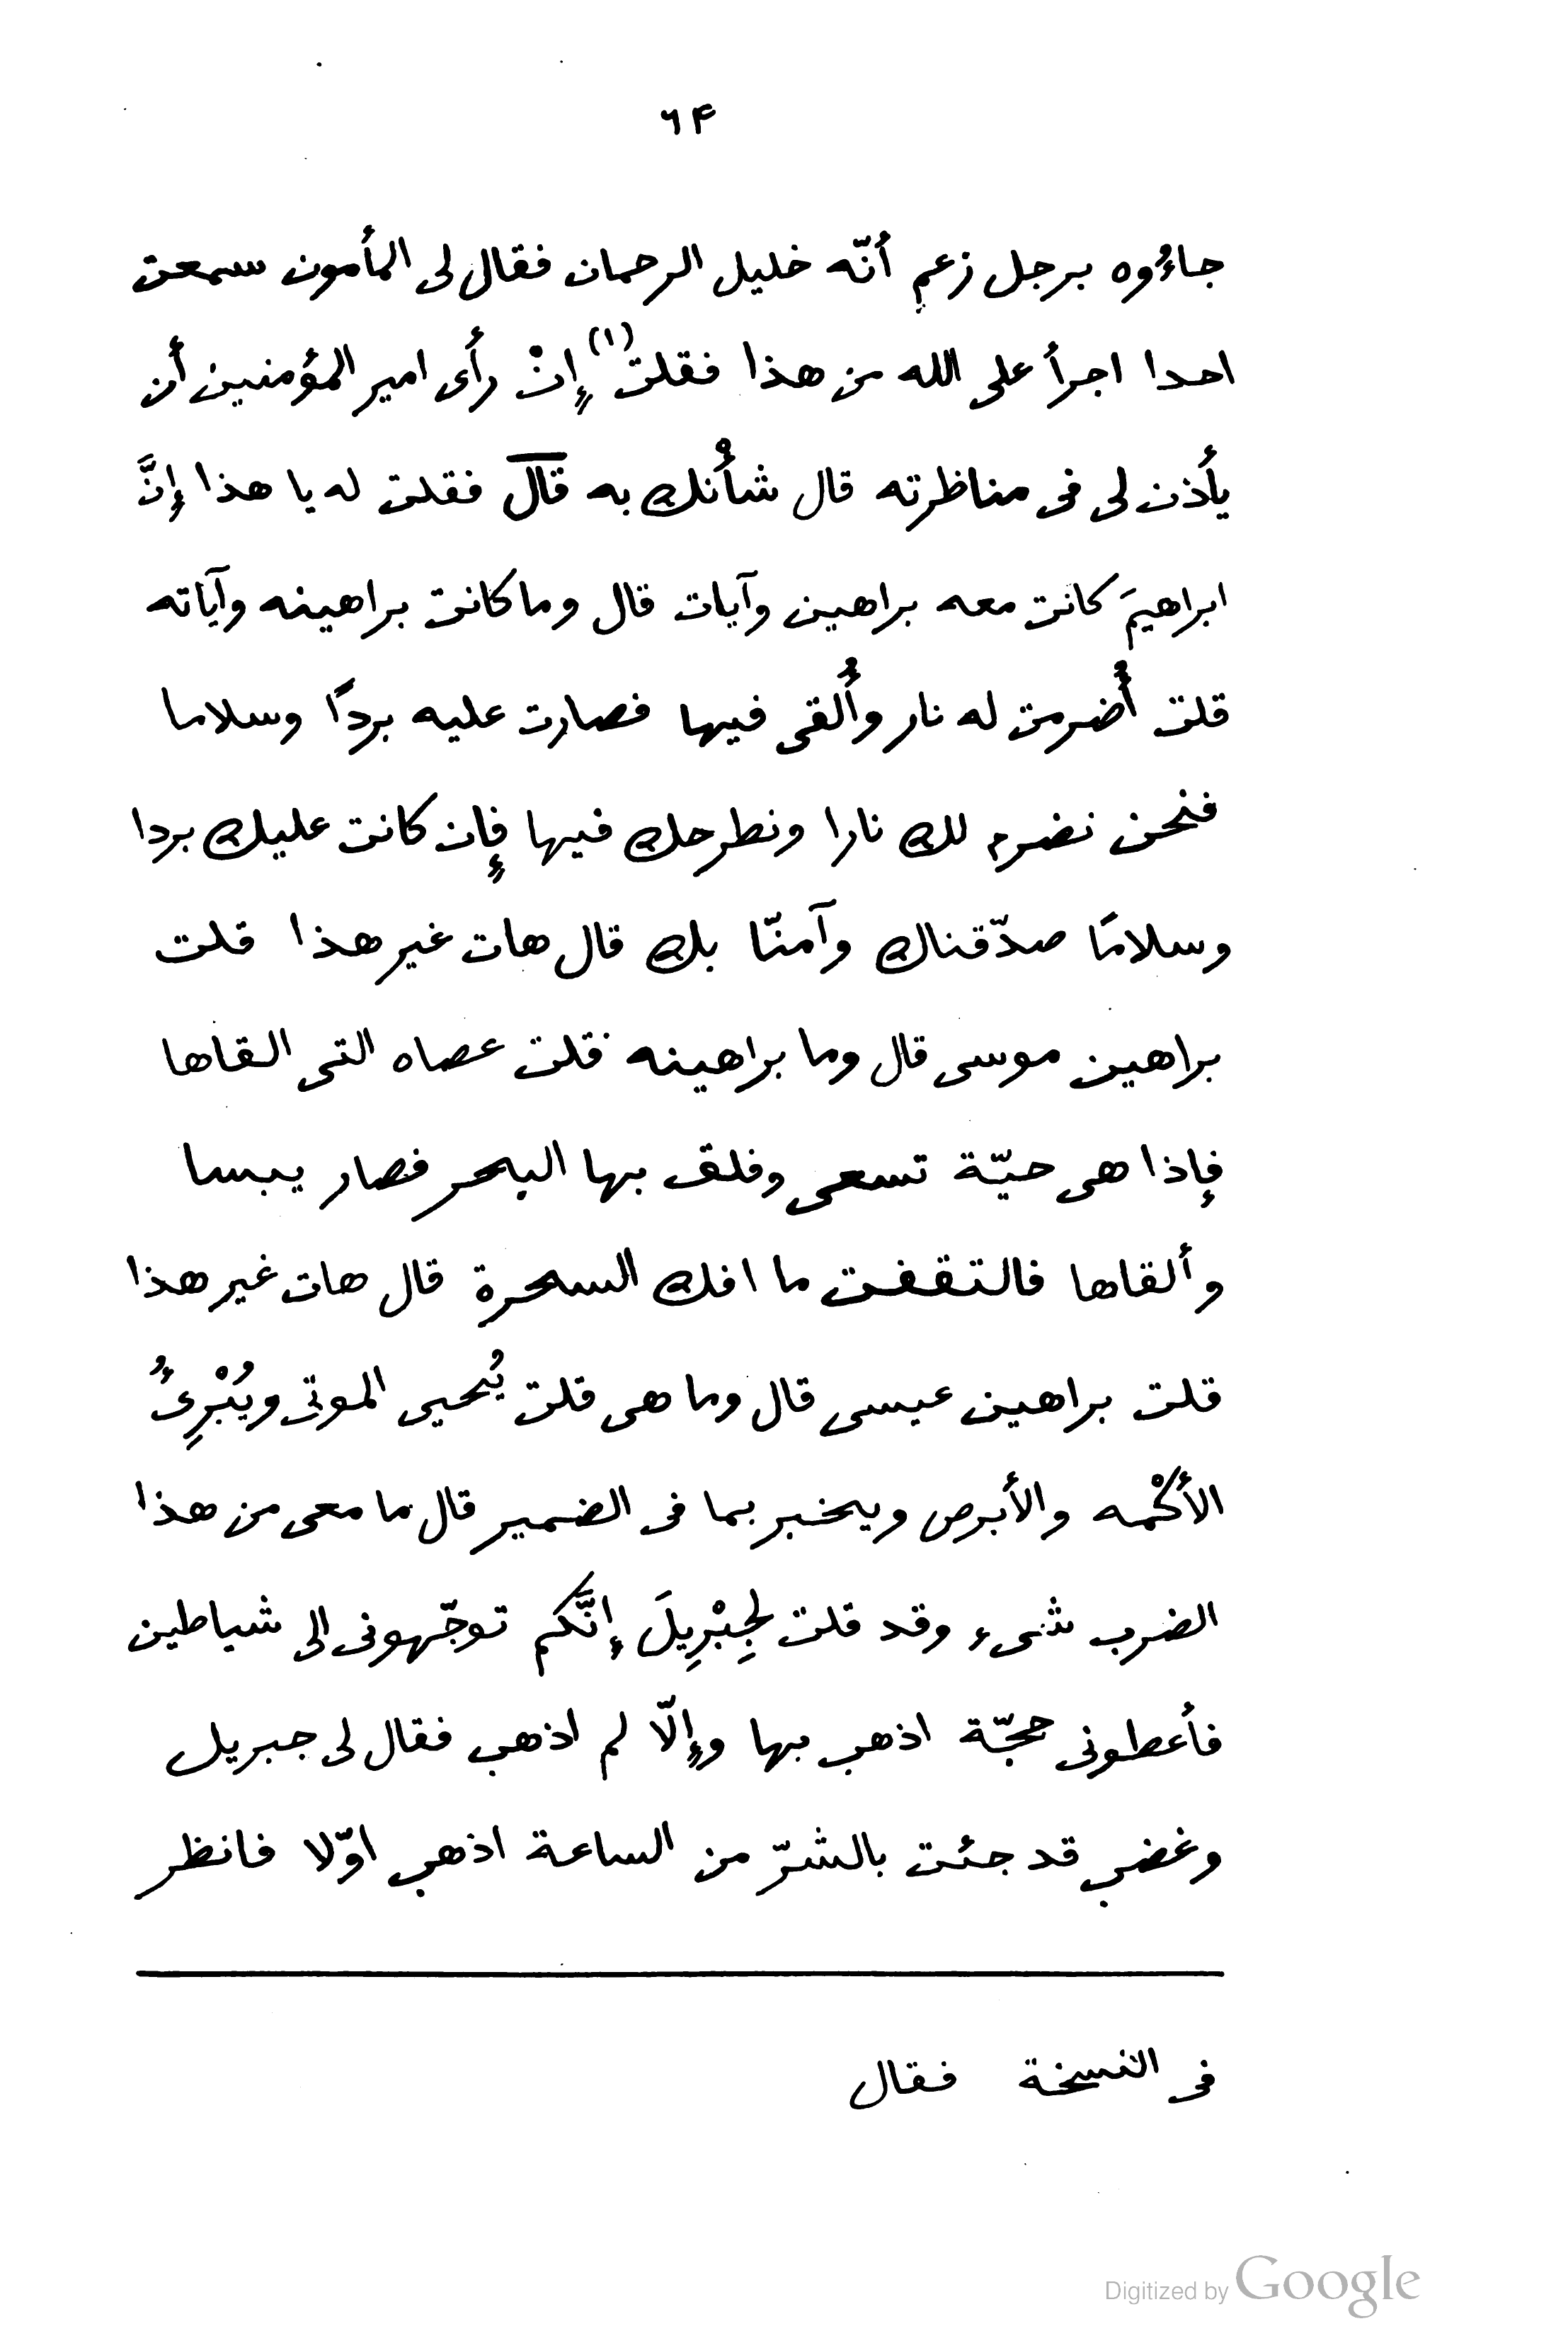 ٦۴
جاءُوه برجل زعم أنّه خليل الرحمان فقال لى المأمون سمعت
احدا اجرأ على الله من هذا فقلت(١) إِنْ رأى امير المؤمنين أن
يأذن لى فى مناظرته قال شأْنك به قال فقلت له يا هذا إِنَّ
ابراهيمَ كانت معه براهين وآيات قال وما كانت براهينه وآياته
قلت أُضرمت له نار وأُلقى فيها فصارت عليه بردًا وسلاما
فنحن نضرم لك نارا ونطرحك فيها فإِن كانت عليك بردا
وسلامًا صدّقناك وآمنّا بك قال هات غير هذا قلت
براهين موسى قال وما براهينه قلت عصاه التى القاها
فإذا هى حيّة تسعى وفلق بها البحر فصار يبسا
وألقاها فالتقفت ما افك السحرة قال هات غير هذا
قلت براهين عيسى قال وما هى قلت يُحيى الموتى ويُبْرِئُ
الأكْمه والأبرص ويخبر بما فى الضمير قال ما معى من هذا
الضرب شىء وقد قلت لِجِبْرِيلَ إِنَّكم توجّهونى الى شياطين
فأعطونى حجّة اذهب بها وإِلّا لم اذهب فقال لى جبريل
وغضب قد جئت بالشرّ من الساعة اذهب اوّلا فانظر
فى النسخة فقال
Digitized by Google